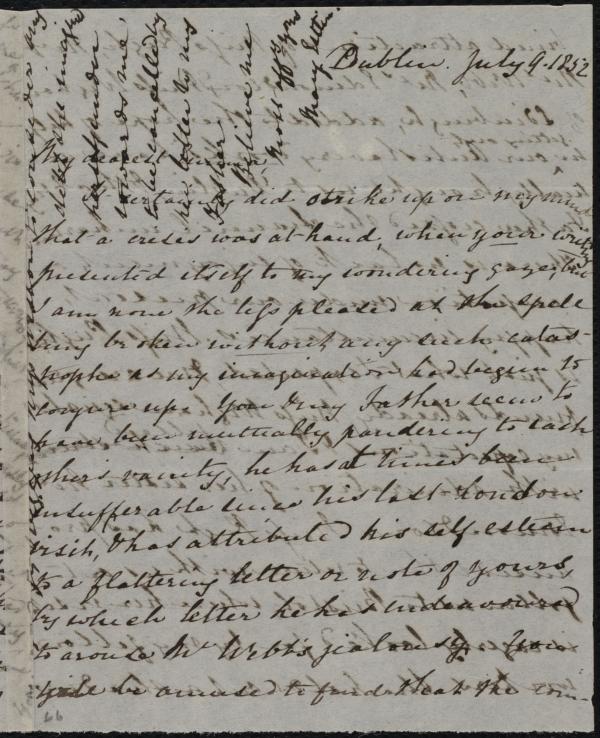 Dublin. July 9. 1852
My dearest
It certainly did strike up on my mind
that a crisis was at hand, when your writing
presented itself to my wondering gaze, but
I am none the less pleased at the spell
being broken without any such catas-
trophe as my imagination had begun to
conjure up. You & my Father seem to
have been mutually pandering to each
others vanity, he has at times been
insufferable since his last London
visit, & has attributed his self esteem
to a flattering letter or note of yours,
by which letter he has endeavoured
to arouse Mr Webb's jealousy. You
will be amused to find that the com-
66
towards me,
to be cancelled by
his letter to my
Father
Believe me
most affly yrs
Mary